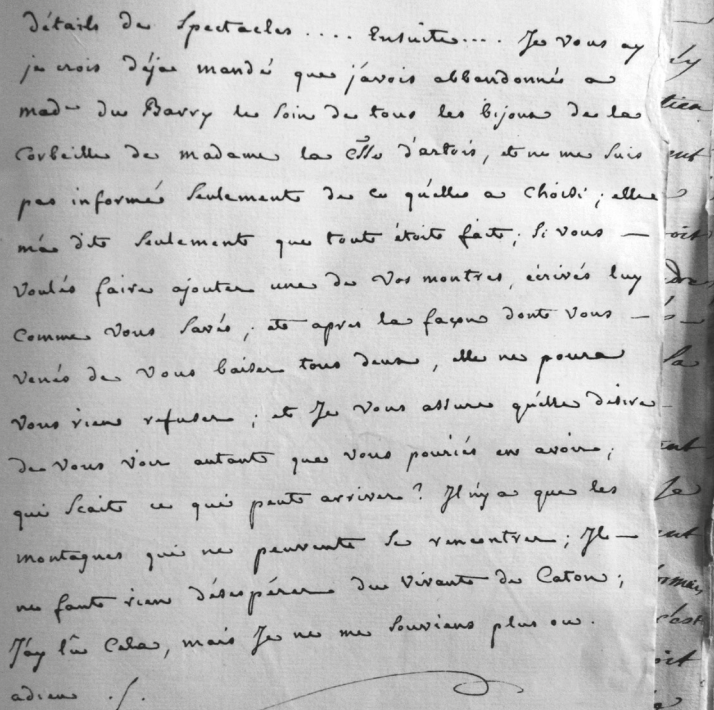 détails de Spectacles .... Ensuite.... Je vous ay
je crois déja mandé que j'avois abbandonné a
mad.e du Barry le Soin de tous les bijoux de la
Corbeille de madame la Ctsse d'artois, et ne me Suis
pas informé Seulement de ce qu'elle a choisi ; elle
m'a dit Seulement que tout étoit fait ; Si vous —
voulés faire ajouter une de vos montres, écrivés luy
comme vous Savés ; et apres la façon dont vous —
venés de vous baiser tous deux, elle ne poura
vous rien refuser ; et Je vous assure qu'elle désire
de vous voir autant que vous pouriés en avoir ;
qui Scait ce qui peut arriver ? Il n'y a que les
montagnes qui ne peuvent Se rencontrer ; Il —
ne faut rien désespérer du vivant de Caton ;
J'ay lû Cela, mais Je ne me Souviens plus ou.
adieu ./.
ly
oit
la
Je
c'est